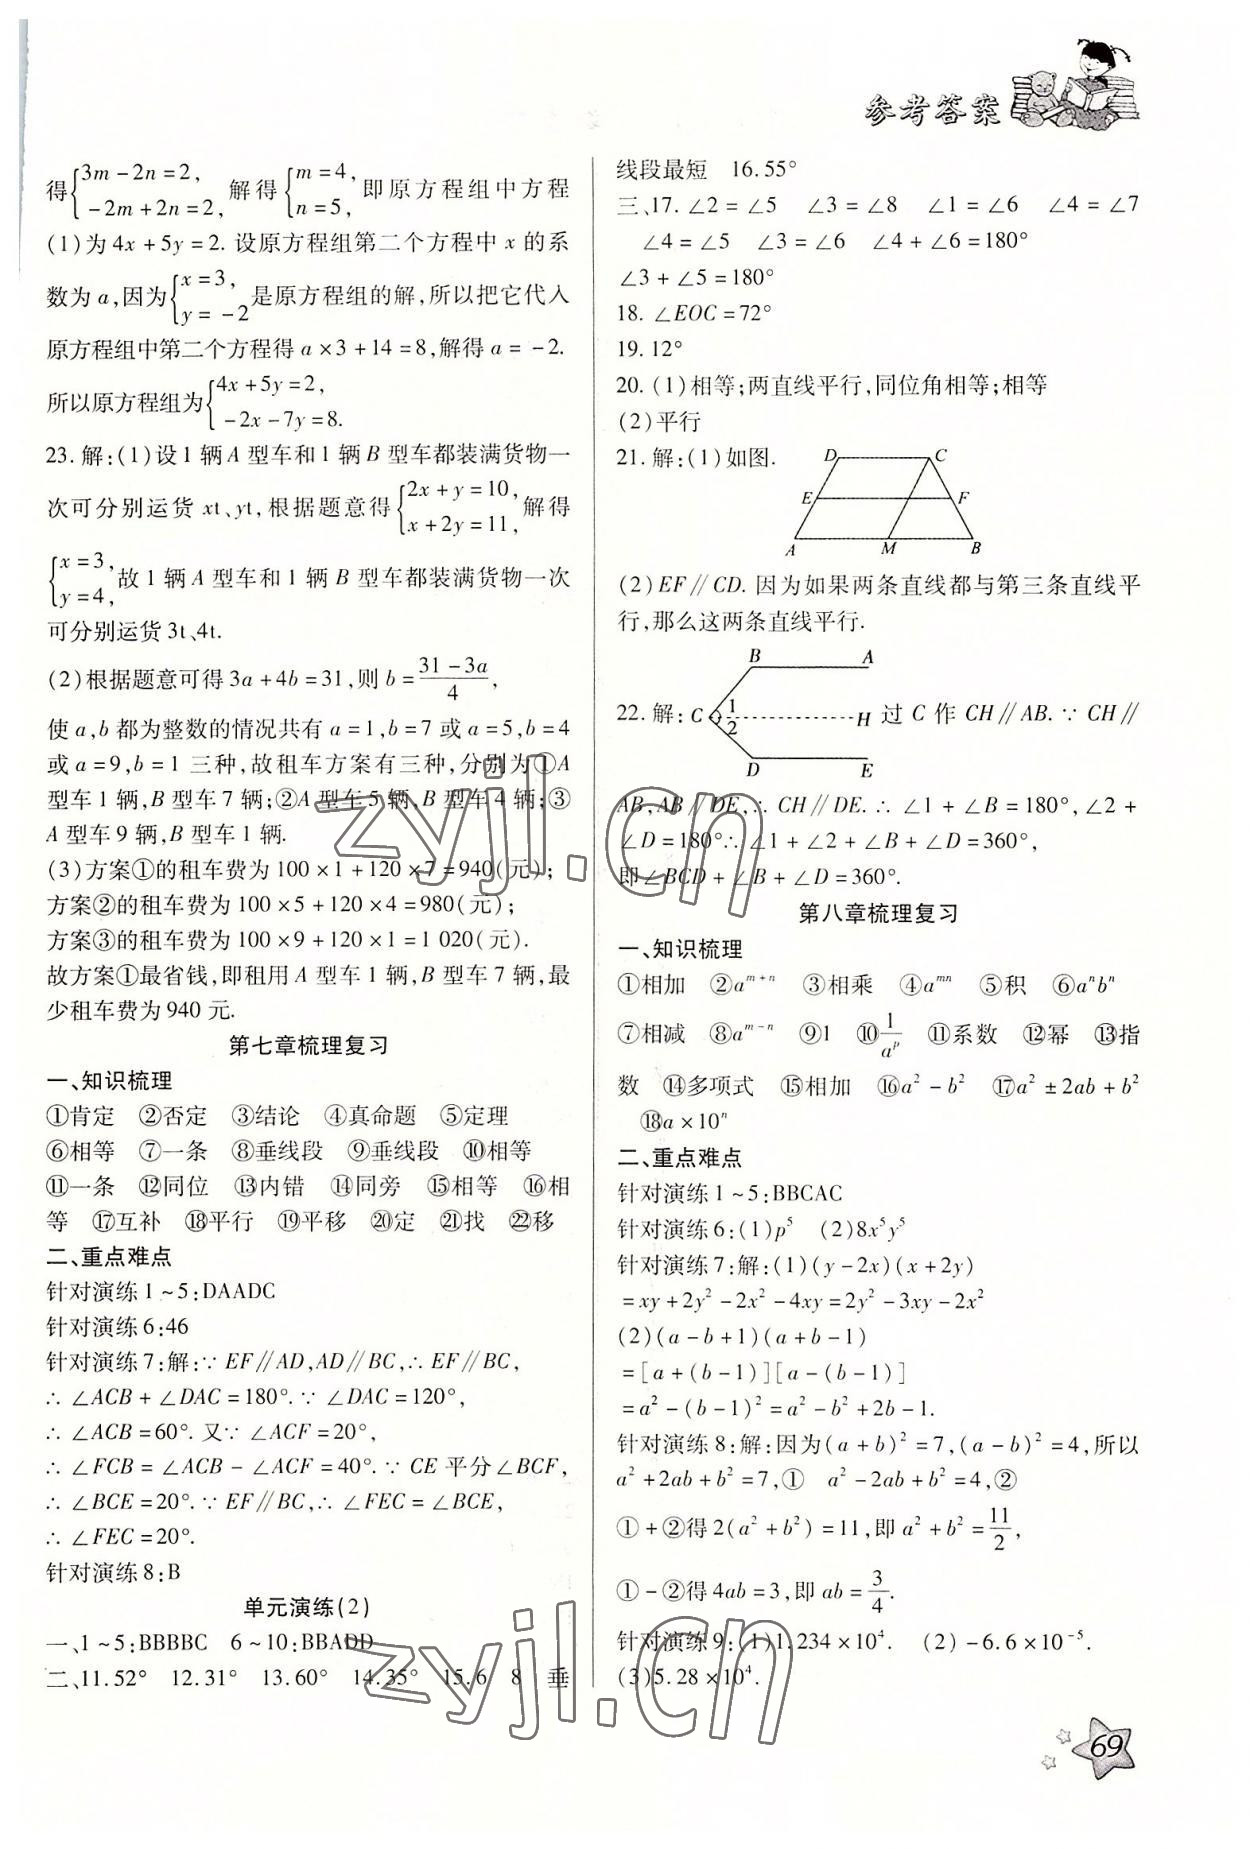 参考答案
得{3m-2n=2, -2m+2n=2, 解得{m=4, n=5, 即原方程组中方程
(1)为4x+5y=2. 设原方程组第二个方程中 x 的系
数为 a,因为{x=3, y=-2 是原方程组的解,所以把它代入
原方程组中第二个方程得 a×3+14=8,解得 a=-2.
所以原方程组为{4x+5y=2, -2x-7y=8.
23. 解:(1)设1辆A型车和1辆B型车都装满货物一
次可分别运货 xt、yt,根据题意得{2x+y=10, x+2y=11, 解得
{x=3, y=4, 故1辆A型车和1辆B型车都装满货物一次
可分别运货3t、4t.
(2)根据题意可得3a+4b=31,则b=(31-3a)/4,
使 a,b 都为整数的情况共有 a=1,b=7 或 a=5,b=4
或 a=9,b=1 三种,故租车方案有三种,分别为①A
型车1辆,B型车7辆;②A型车5辆,B型车4辆;③
A型车9辆,B型车1辆.
(3)方案①的租车费为100×1+120×7=940(元);
方案②的租车费为100×5+120×4=980(元);
方案③的租车费为100×9+120×1=1 020(元).
故方案①最省钱,即租用A型车1辆,B型车7辆,最
少租车费为940元.
第七章梳理复习
一、知识梳理
①肯定 ②否定 ③结论 ④真命题 ⑤定理
⑥相等 ⑦一条 ⑧垂线段 ⑨垂线段 ⑩相等
⑪一条 ⑫同位 ⑬内错 ⑭同旁 ⑮相等 ⑯相
等 ⑰互补 ⑱平行 ⑲平移 ⑳定 ㉑找 ㉒移
二、重点难点
针对演练1~5:DAADC
针对演练6:46
针对演练7:解:∵EF∥AD,AD∥BC,∴EF∥BC,
∴∠ACB+∠DAC=180°.∵∠DAC=120°,
∴∠ACB=60°.又∵∠ACF=20°,
∴∠FCB=∠ACB-∠ACF=40°.∵CE平分∠BCF,
∴∠BCE=20°.∵EF∥BC,∴∠FEC=∠BCE,
∴∠FEC=20°.
针对演练8:B
单元演练(2)
一、1~5:BBBBC 6~10:BBADD
二、11.52° 12.31° 13.60° 14.35° 15.6 8 垂
线段最短 16.55°
三、17.∠2=∠5 ∠3=∠8 ∠1=∠6 ∠4=∠7
∠4=∠5 ∠3=∠6 ∠4+∠6=180°
∠3+∠5=180°
18. ∠EOC=72°
19.12°
20.(1)相等;两直线平行,同位角相等;相等
(2)平行
21.解:(1)如图.
D C
E F
A M B
(2)EF∥CD.因为如果两条直线都与第三条直线平
行,那么这两条直线平行.
B A
22.解: C 1 2 H 过C作CH∥AB.∵CH∥
D E
AB,AB∥DE,∴CH∥DE.∴∠1+∠B=180°,∠2+
∠D=180°∴∠1+∠2+∠B+∠D=360°,
即∠BCD+∠B+∠D=360°.
第八章梳理复习
一、知识梳理
①相加 ②a^{m+n} ③相乘 ④a^{mn} ⑤积 ⑥a^n b^n
⑦相减 ⑧a^{m-n} ⑨1 ⑩1/a^p ⑪系数 ⑫幂 ⑬指
数 ⑭多项式 ⑮相加 ⑯a²-b² ⑰a²±2ab+b²
⑱a×10^n
二、重点难点
针对演练1~5:BBCAC
针对演练6:(1)p⁵ (2)8x⁵y⁵
针对演练7:解:(1)(y-2x)(x+2y)
=xy+2y²-2x²-4xy=2y²-3xy-2x²
(2)(a-b+1)(a+b-1)
=[a+(b-1)][a-(b-1)]
=a²-(b-1)²=a²-b²+2b-1.
针对演练8:解:因为(a+b)²=7,(a-b)²=4,所以
a²+2ab+b²=7,① a²-2ab+b²=4,②
①+②得2(a²+b²)=11,即a²+b²=11/2,
①-②得4ab=3,即ab=3/4.
针对演练9:(1)1.234×10⁴. (2)-6.6×10⁻⁵.
(3)5.28×10⁴.
69
zyjl.cn
zyjl.cn